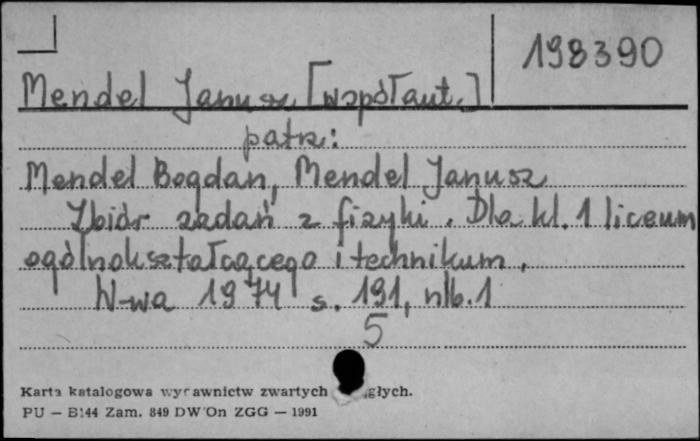 198390
Mendel Janusz [współaut.]
patrz:
Mendel Bogdan, Mendel Janusz
Zbiór zadań z fizyki. Dla kl. 1 liceum
ogólnokształcącego i technikum.
W-wa 1974 s. 191, nlb. 1
5
Karta katalogowa wydawnictw zwartych
PU — B144 Zam. 849 DW On ZGG — 1991